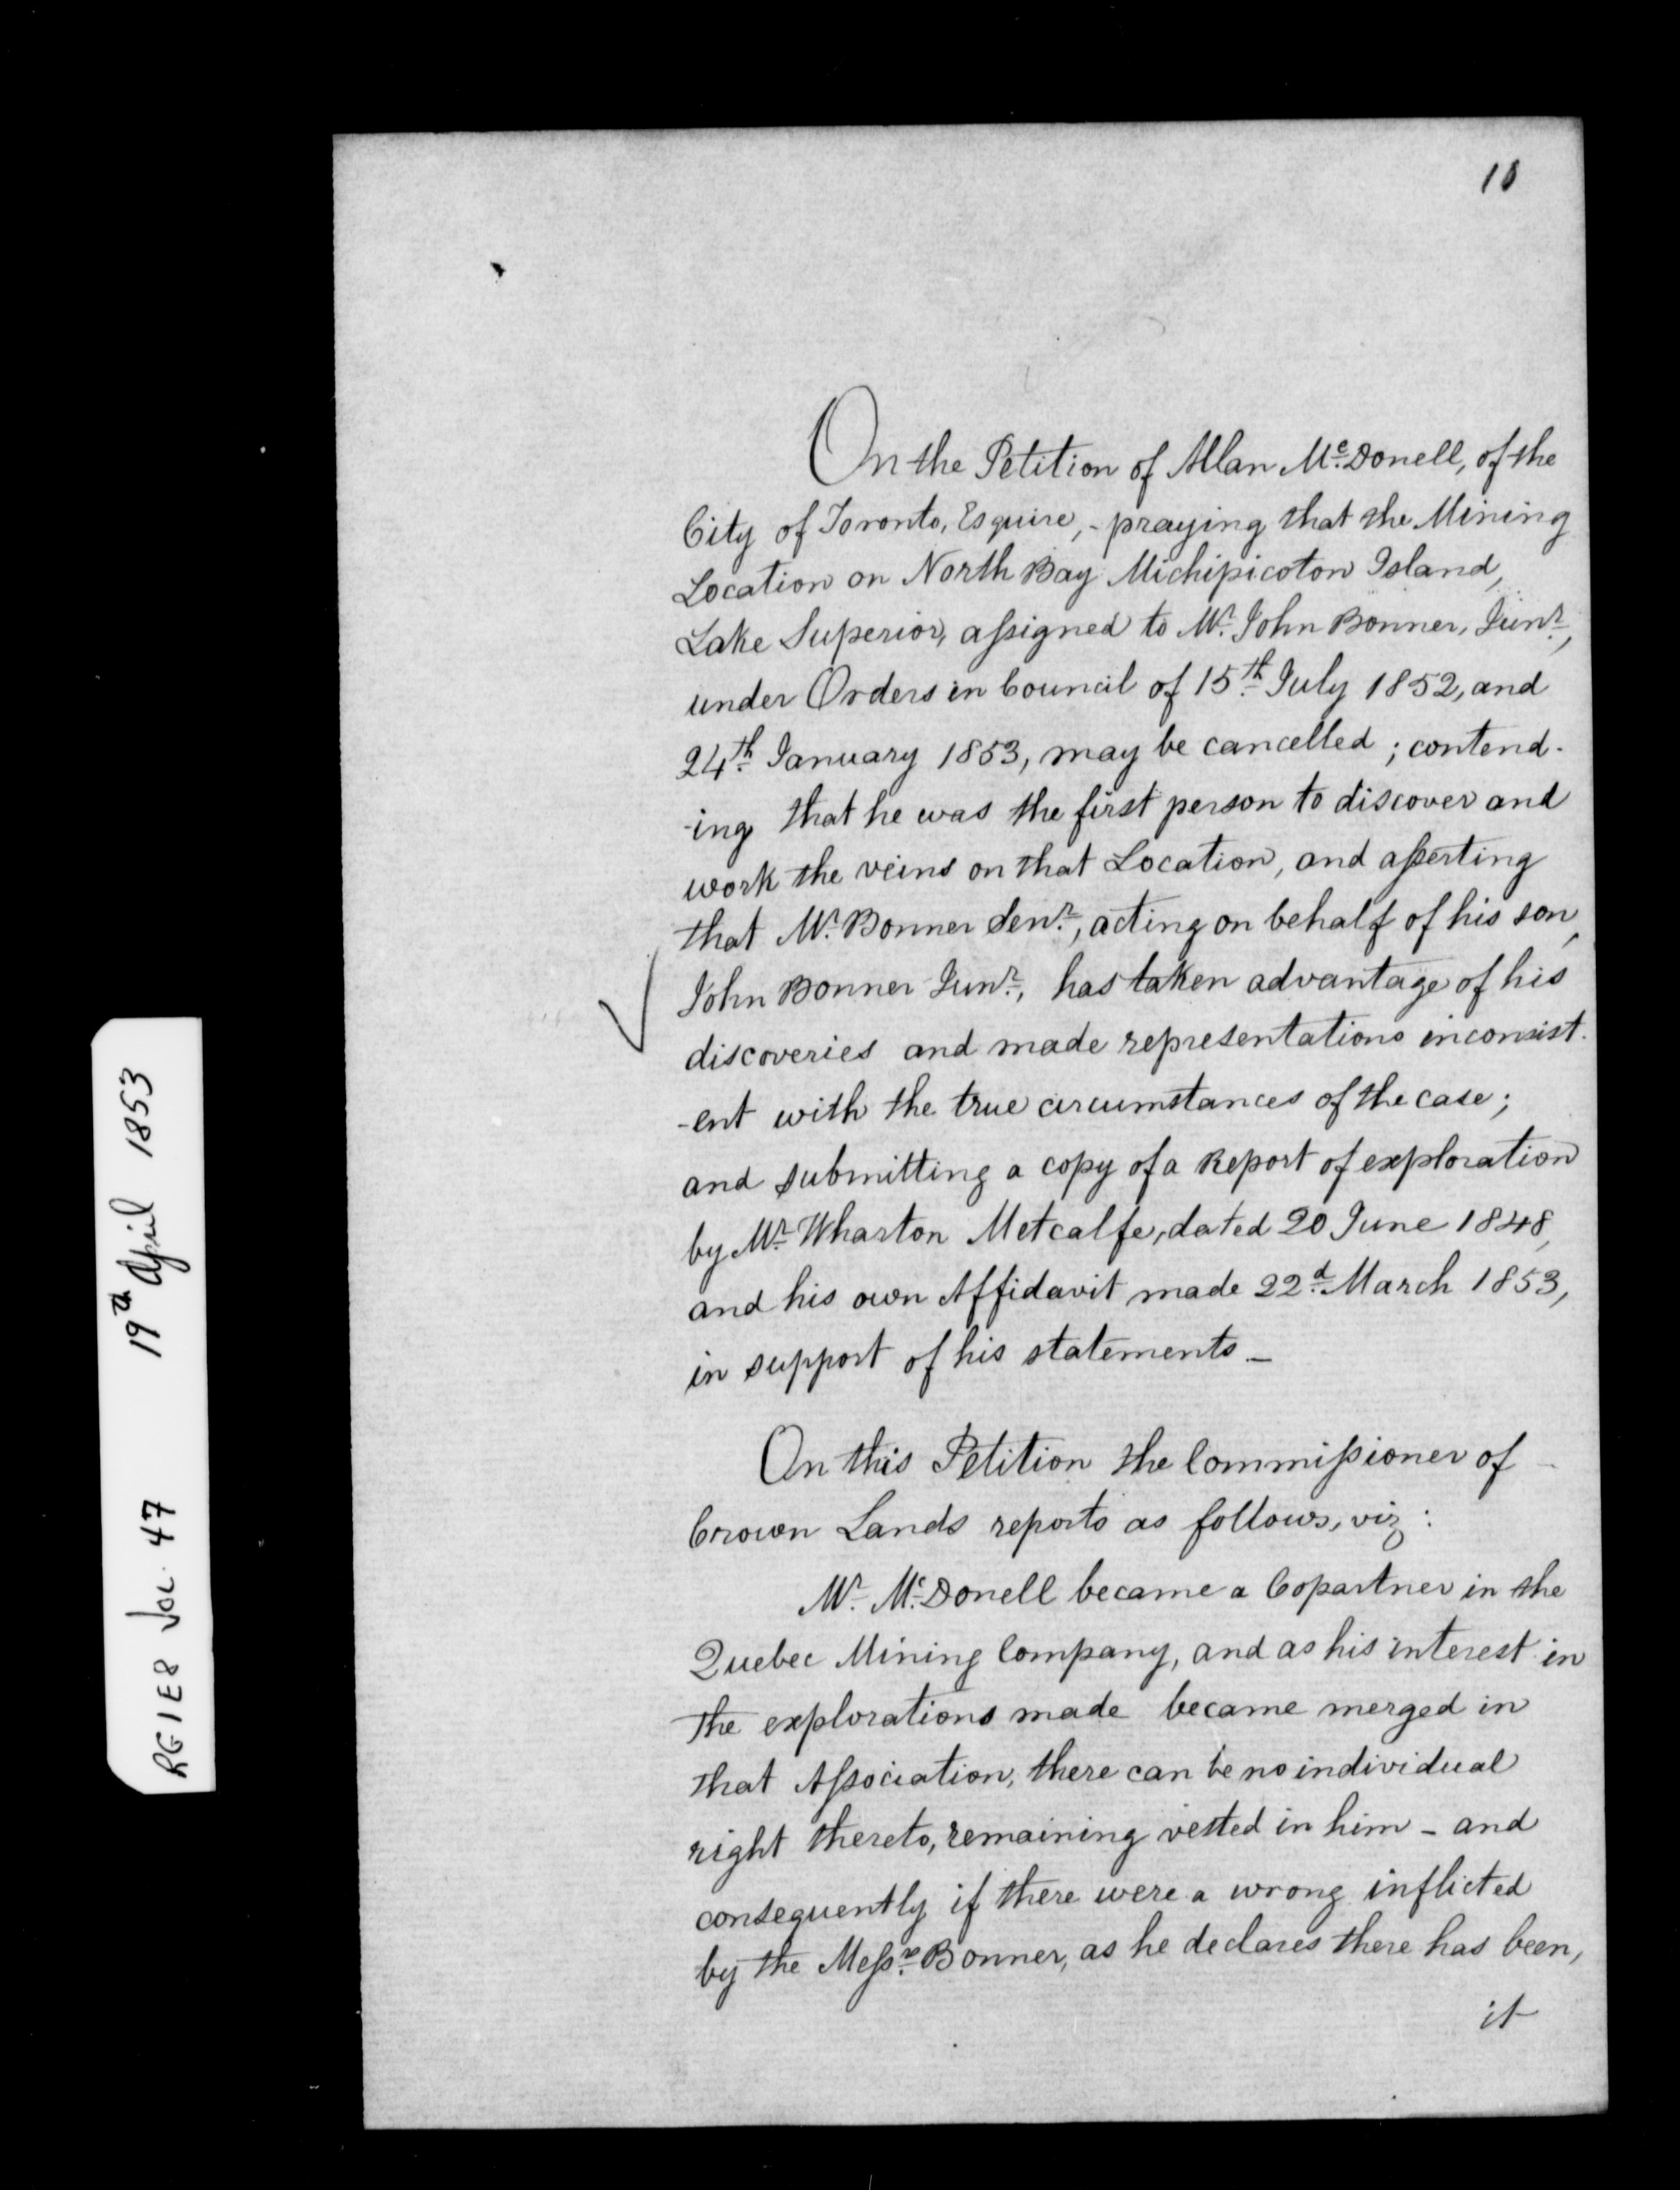 18
On the Petition of Allan Mc. Donell, of the
City of Toronto, Esquire, - praying that the Mining
Location on North Bay Michipicoton Island,
Lake Superior, assigned to Mr. John Bonner, Junr.,
under Orders in Council of 15th July 1852, and
24th January 1853, may be cancelled ; contend-
-ing that he was the first person to discover and
work the veins on that Location, and asserting
that Mr. Bonner Senr., acting on behalf of his son,
John Bonner Junr., has taken advantage of his
discoveries and made representations inconsist-
-ent with the true circumstances of the case ;
and submitting a copy of a Report of exploration
by Mr. Wharton Metcalfe, dated 20 June 1848,
and his own Affidavit made 22d. March 1853,
in support of his statements _
On this Petition the Commissioner of
Crown Lands reports as follows, viz :
Mr. Mc. Donell became a Copartner in the
Quebec Mining Company, and as his interest in
the explorations made became merged in
that Association, there can be no individual
right thereto, remaining vested in him _ and
consequently if there were a wrong inflicted
by the Messrs. Bonner, as he declares there has been,
it
RG 1 E8 Vol. 47 19th April 1853